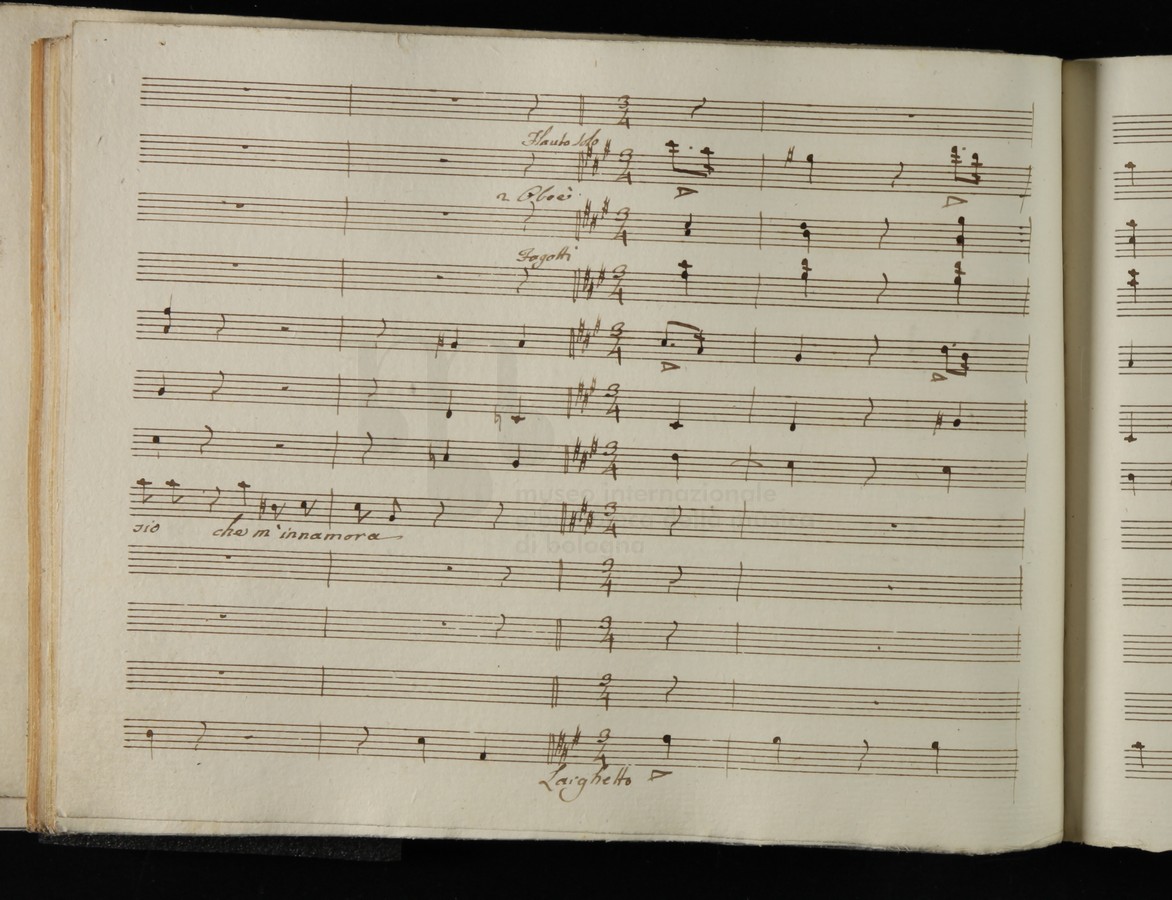 Flauto Solo
2 Oboè
Fagotti
museo internazionale
di bologna
sio che m'innamora
Larghetto